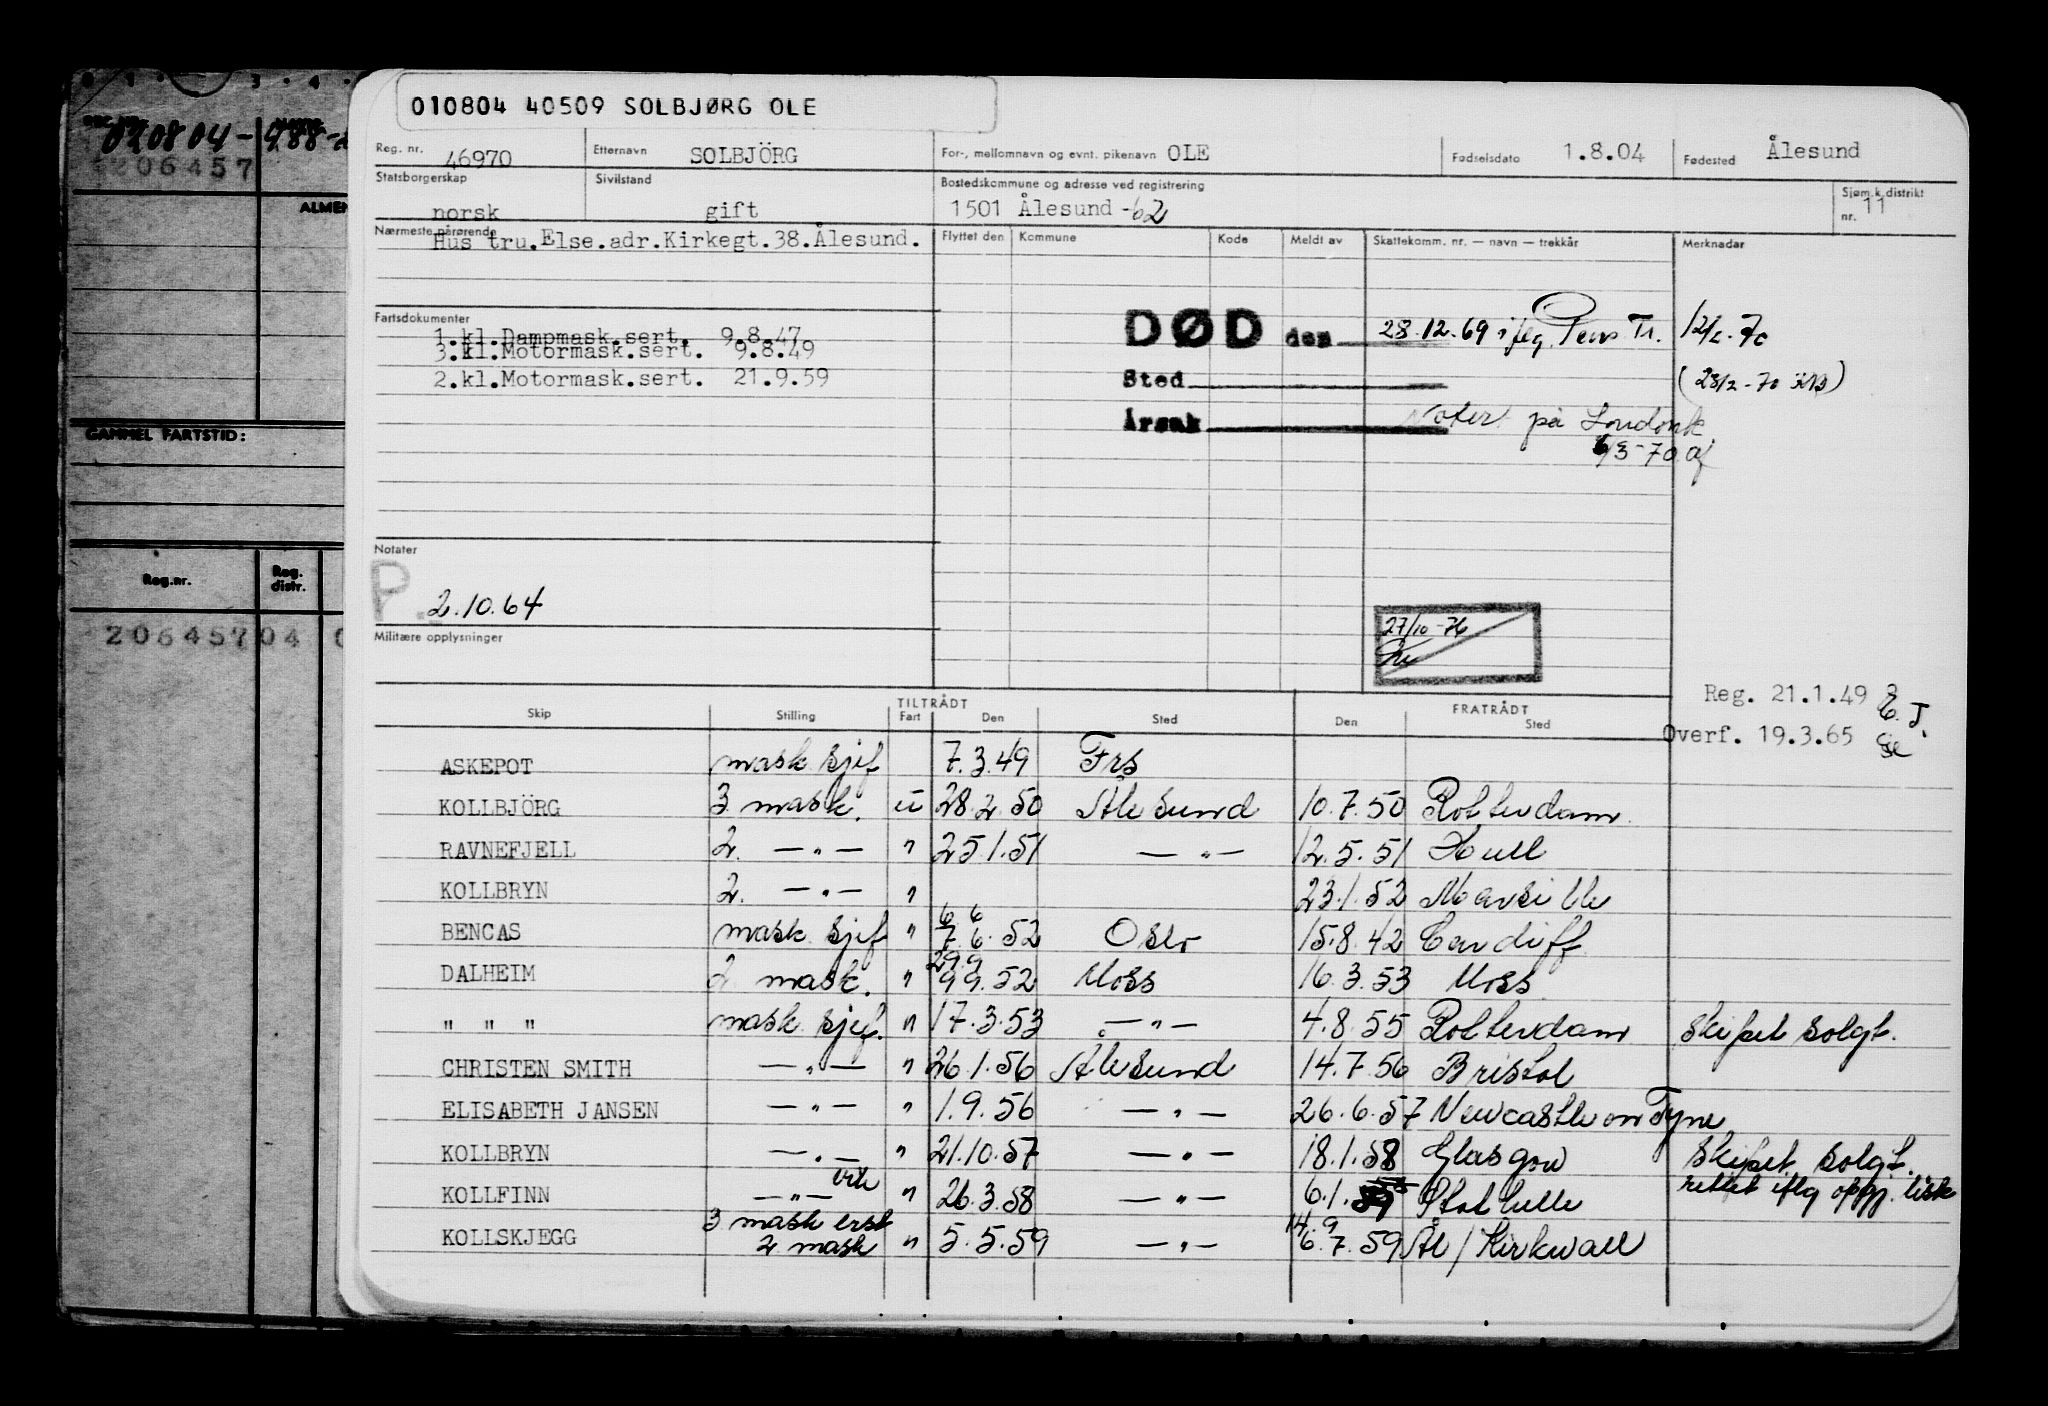 010804 40509 SOLBJØRG OLE
020804-
206457
ALMEN
GAMMEL FARTSTID:
Reg.nr. Reg. distr.
206457 04
Reg. nr. 46970 Etternavn SOLBJÖRG For-, mellomnavn og evnt. pikenavn OLE Fødselsdato 1.8.04 Fødested Ålesund
Statsborgerskap norsk Sivilstand gift Bostedskommune og adresse ved registrering 1501 Ålesund -62 Sjøm.k.distrikt nr. 11
Nærmeste pårørende Hustru.Else.adr.Kirkegt.38.Ålesund.
Flyttet den Kommune Kode Meldt av Skattekomm. nr. — navn — trekkår Merknadar
Fartsdokumenter
1.kl.Dampmask.sert. 9.8.47
3.kl.Motormask.sert. 9.8.49
2.kl.Motormask.sert. 21.9.59
DØD den 28.12.69 iflg. Pens Tr. 12/2-70
Sted (28/2-70
Årsak Notert på Londonk
6/3-70
Notater
P. 2.10.64
27/10-76
Militære opplysninger
Reg. 21.1.49
Overf. 19.3.65
TILTRÅDT FRATRÅDT
Skip Stilling Fart Den Sted Den Sted
ASKEPOT mask sjef 7.3.49 Frs
KOLLBJÖRG 3 mask. u 28.2.50 Ålesund 10.7.50 Rotterdam
RAVNEFJELL 2. —"— " 25.1.51 —"— 12.5.51 Hull
KOLLBRYN 2. —"— " 23.1.52 Marseille
6 6
BENCAS mask sjef " 7.6.52 Oslo 15.8.42 Cardiff
29.9
DALHEIM 2 mask. " 9 9.52 Moss 16.3.53 Moss
" " " mask sjef. " 17.3.53 —"— 4.8.55 Rotterdam Skipet solgt.
CHRISTEN SMITH —"— " 26.1.56 Ålesund 14.7.56 Bristol
ELISABETH JANSEN —"— " 1.9.56 —"— 26.6.57 Newcastle on Tyne
KOLLBRYN —"— " 21.10.57 —"— 18.1.58 Glasgow Skipet solgt.
KOLLFINN —"— vik " 26.3.58 —"— 6.1.59 Stathelle rettet iflg oppgj. lisk
3 mask erst 14.9
KOLLSKJEGG 2 mask " 5.5.59 —"— 6.7.59 Ål/Kirkwall